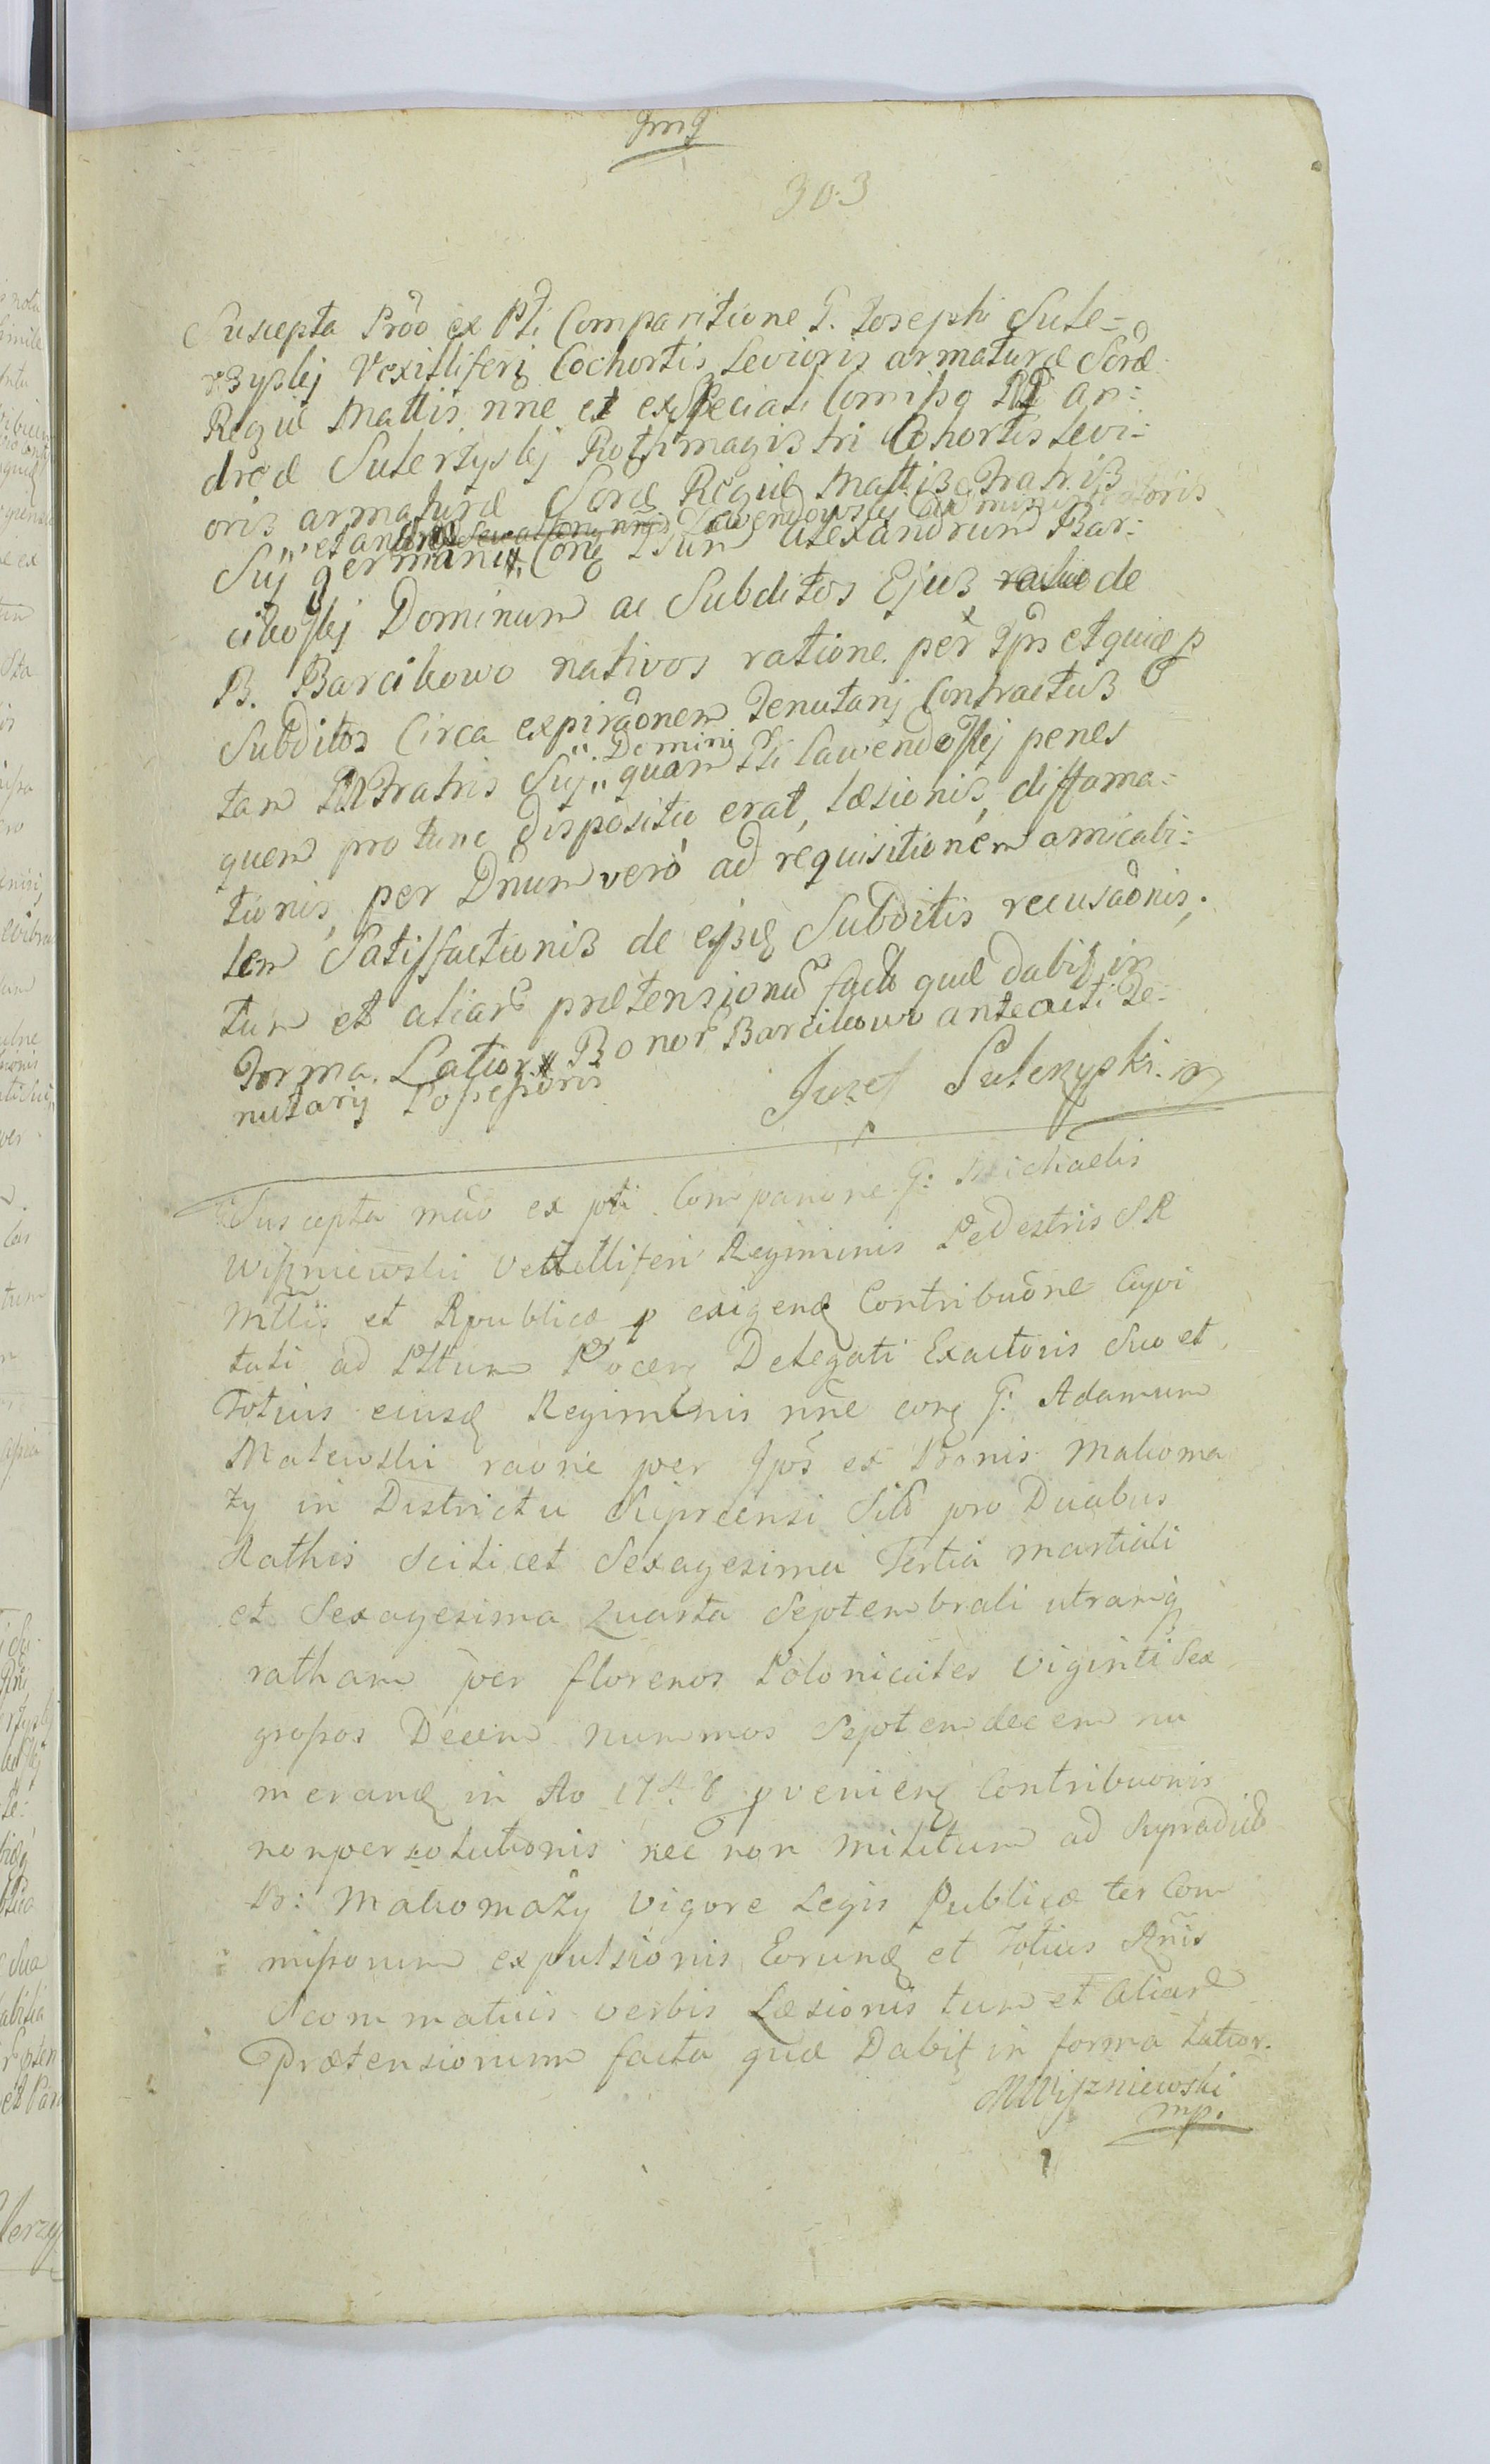 303
Suscepta Prõõ ex Pti Comparitione G. Josephi Sule=
rzyskj Vexilliferi Cochortis Levioris armaturæ Sõræ
Regiæ Mattis nñe et ex Speciali Comiss an=
dreæ Sulerzyskj Rothmagistri Cohortis Levi=
oris armaturæ Sõræ Regiæ Mattis Fratris
et Lawendowskj administratoris
Suj germani Alexandrum Bar=
cikoskj Dominum ac Subditos Ejus de
B. Barcikowo nativos ratione per Ipsũ et quiæ p
Subditos Circa expirãonem Tenutarij Contractus
Domini
tam Fratris Suj quam Lawendoskj penes
quem pro tunc dispositio erat, læsionis, diffama=
tionis, per Dñum verò ad requisitionem amicabi=
lem Satisfactionis de ejsdẽ Subditis recusãonis,
tum et aliarũ prætensionũ facta quæ dabit in
Forma Latiori Bonorũ Barcikowo anteacti Te=
nutarij Possessoris
Juzef Sulerzyski. m
Suscepta mão ex pti Comparione G: Michaelis
Wiszniewski Vexilliferi Regiminis Pedestris S R
Mttis et Rpublicæ p exigenđ Contribuõne
tati ad Delegati Exactoris Suo et
Totius eiusđ Regiminis nñe G: Adamum
Malewski raõne per Ipsũ ex Bonis Makoma
zy in Districtu Sierpcensi Sitis pro Duabus
Rathis Scilicet Sexagesima Tertia martiali
et Sexagesima Quarta Septembrali utramq
ratham per florenos Polonicales Viginti Sex
grossos Decem nummos Septemdecem nu
merand in Ao 1748 pvenien Contribuonis
nonpersolutionis nec non militum ad
B: Makomazy vigore Legis Publicæ ter Com
missorum expulsionis Eorund et Totius
Scommaticis verbis Læsionis tum et Aliarũ
Prætensionum facta quæ Dabit in forma Latior.
MWiszniewski
mp.